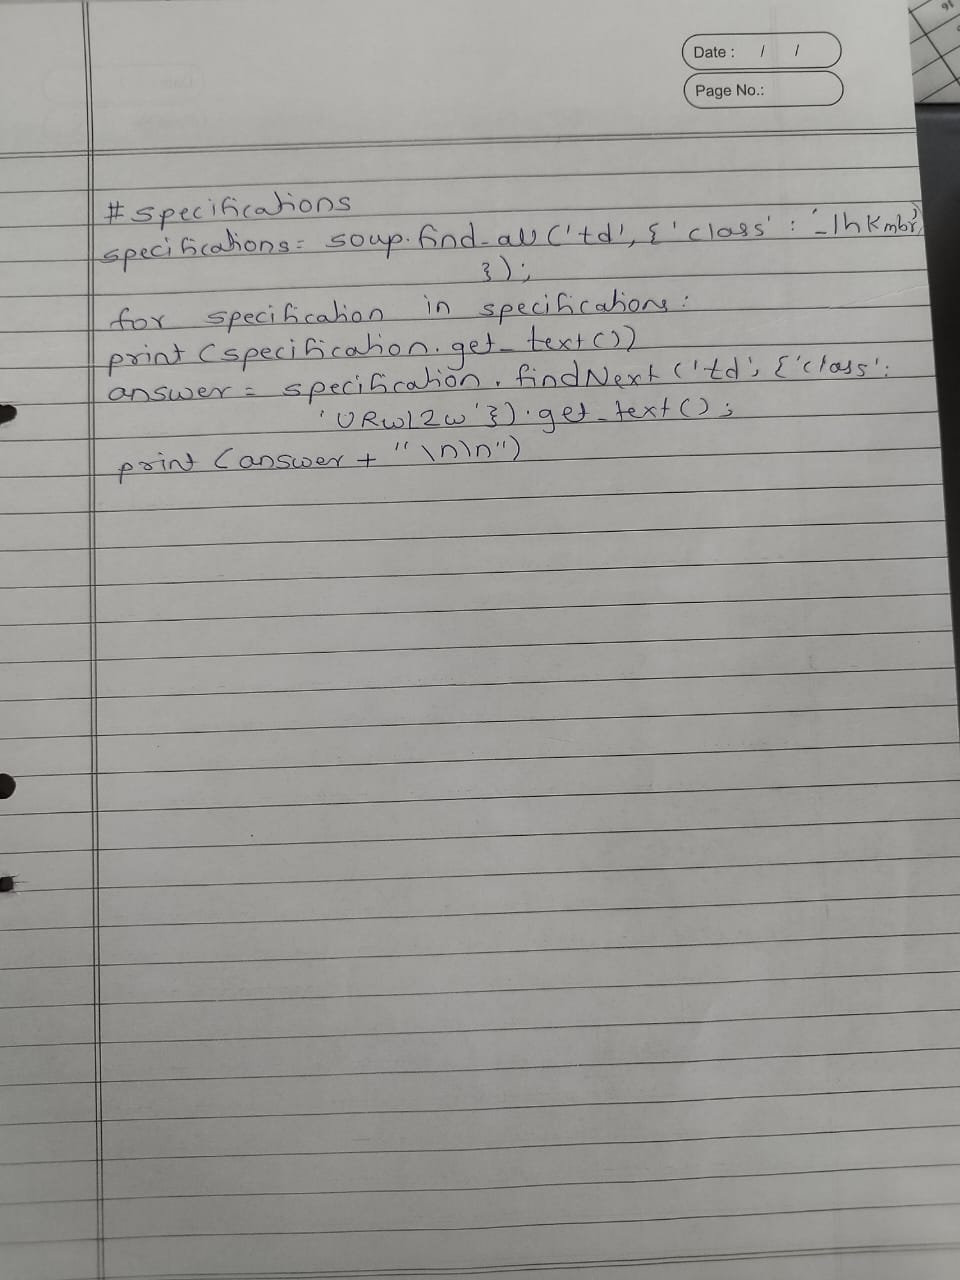 Date : / /
Page No.:
# specifications
specifications = soup.find_all ('td', { 'class' : '_1hKmbr'
});
for specification in specifications :
print (specification.get_text())
answer = specification.findNext ('td', {'class':
'URwl2w'}).get_text();
print (answer + "\n\n")